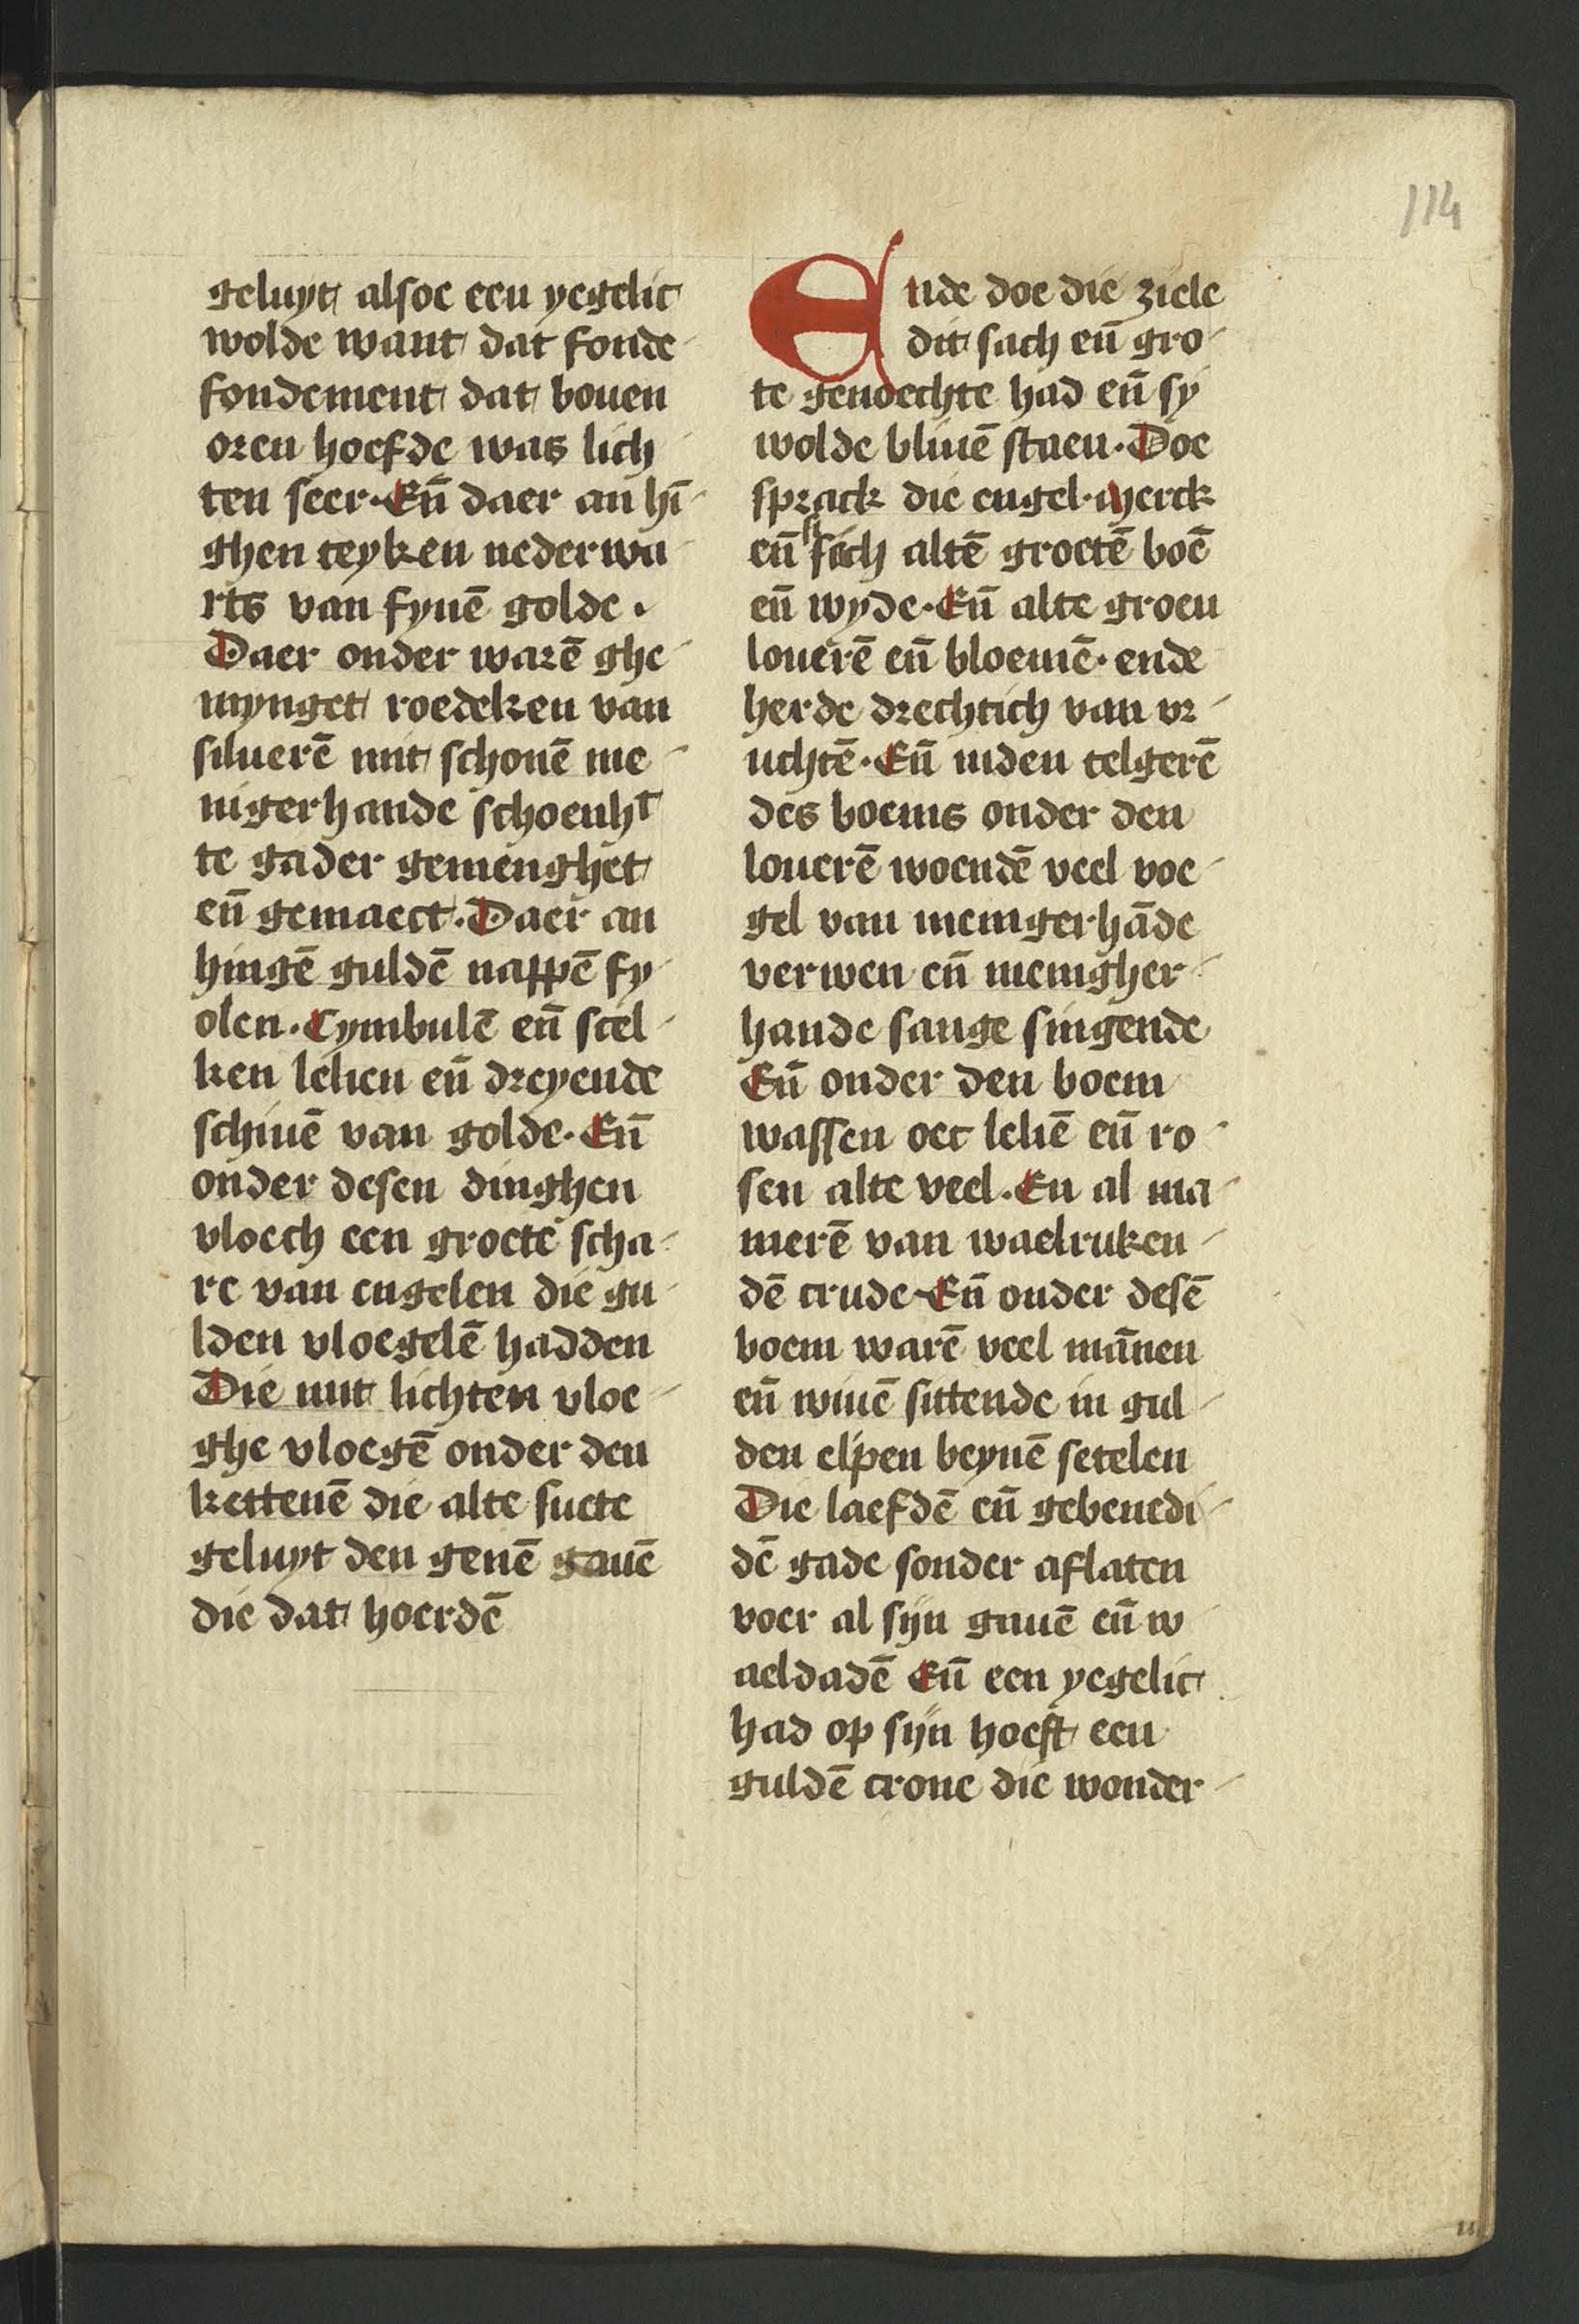 114
geluyt alsoe een yegelic
wolde want dat fonde
fondement dat bouen
oren hoefde was lich
ten seer. Eñ daer an hī
ghen teyken nederwa
rts van fynē golde.
Daer onder warē ghe
mynget roedeken van
siluerē mit schonē me
nigerhande schoenht
te gader gemenghet
eñ gemaect. Daer an
hingē guldē nappē fy
olen. Cymbulē eñ scel
ken lelien eñ dreyende
schiuē van golde. Eñ
onder desen dinghen
vloech een groete scha
re van engelen die gu
lden vloegelē hadden
Die mit lichten vloe
ghe vloegē onder den
kettenē die alte suete
geluyt den genē gauē
die dat hoerdē
Ende doe die ziele
dit sach eñ gro
te genoechte had eñ sy
wolde bliuē staen. Doe
sprack die engel. Merck
eñ sich altē groetē boē
eñ wyde. Eñ alte groen
louerē eñ bloemē. ende
herde drechtich van vr
uchtē. Eñ inden telgerē
des boems onder den
louerē woendē veel voe
gel van menigerhāde
verwen eñ menigher
hande sange singende
Eñ onder den boem
wassen oec leliē eñ ro
sen alte veel. En al ma
nierē van waelruken
dē crude. Eñ onder desē
boem warē veel mānen
eñ wiuē sittende in gul
den elpen beynē setelen
Die laefdē eñ gebenedi
dē gade sonder aflaten
voer al sijn gauē eñ w
aeldadē Eñ een yegelic
had op sijn hoeft een
guldē crone die wonder